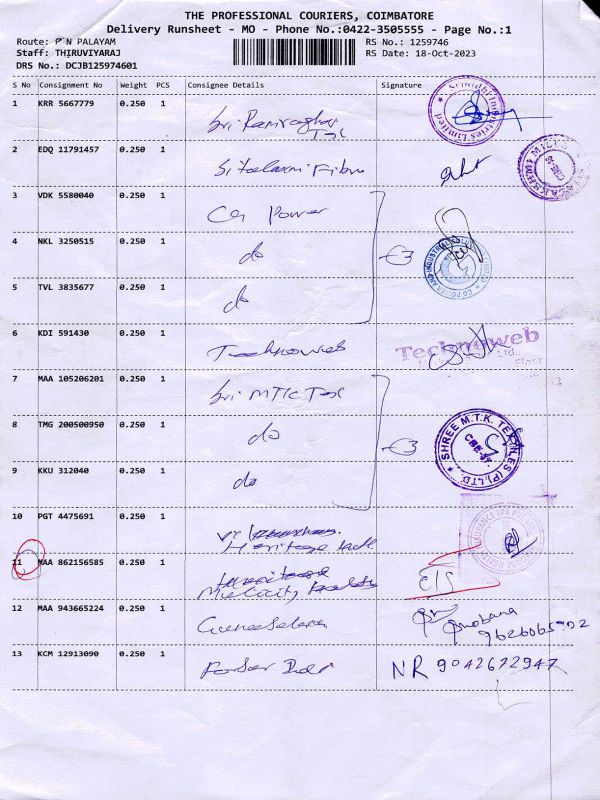 THE PROFESSIONAL COURIERS, COIMBATORE
Delivery Runsheet - MO - Phone No.:0422-3505555 - Page No.:1
Route: P N PALAYAM RS No.: 1259746
Staff: THIRUVIYARAJ RS Date: 18-Oct-2023
DRS No.: DCJB125974601
S No Consignment No Weight PCS Consignee Details Signature
1 KRR 5667779 0.250 1
2 EDQ 11791457 0.250 1
3 VDK 5580040 0.250 1 CG Power
4 NKL 3250515 0.250 1 do
5 TVL 3835677 0.250 1 do
6 KDI 591430 0.250 1 Technoweb Technoweb
7 MAA 105206201 0.250 1 Sri MTK Tex
8 TMG 200500950 0.250 1 do SHREE M.T.K. TEXTILES (P) LTD.
9 KKU 312040 0.250 1 do
10 PGT 4475691 0.250 1 Heritage
11 MAA 862156585 0.250 1
12 MAA 943665224 0.250 1 9626065902
13 KCM 12913090 0.250 1 NR 9042672947